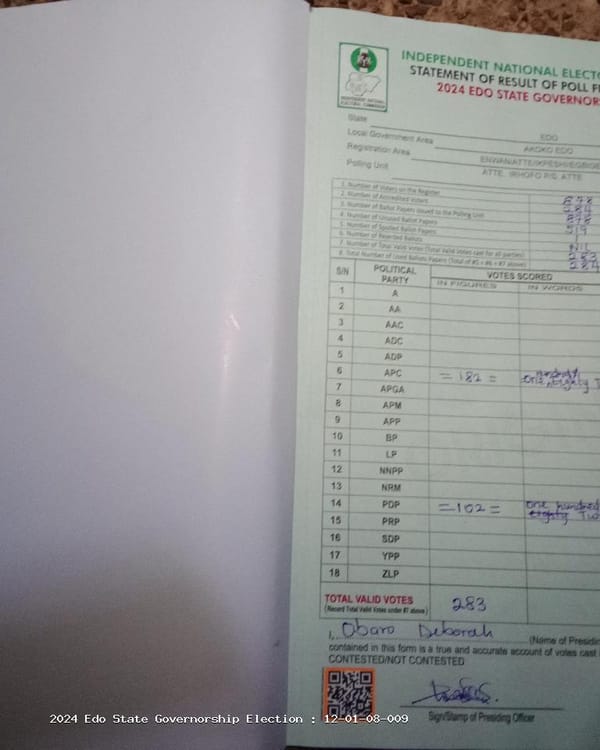 INDEPENDENT NATIONAL ELECTO
STATEMENT OF RESULT OF POLL F
2024 EDO STATE GOVERNOR
INDEPENDENT NATIONAL ELECTORAL COMMISSION
State EDO
Local Government Area AKOKO EDO
Registration Area
Polling Unit ATTE, IRHOFO P/S, ATTE
1. Number of Voters on the Register 878
2. Number of Accredited Voters 284
3. Number of Ballot Papers issued to the Polling Unit 878
4. Number of Unused Ballot Papers
5. Number of Spoiled Ballot Papers
6. Number of Rejected Ballots NIL
7. Number of Total Valid Votes (Total Valid Votes cast for all parties) 283
8. Total Number of Used Ballots Papers (Total of #5 + #6 + #7 above) 284
S/N POLITICAL PARTY VOTES SCORED
IN FIGURES IN WORDS
1 A
2 AA
3 AAC
4 ADC
5 ADP
6 APC = 182 = one hundred Eighty T
7 APGA
8 APM
9 APP
10 BP
11 LP
12 NNPP
13 NRM
14 PDP =102= one hundred
eighty Tw
15 PRP
16 SDP
17 YPP
18 ZLP
TOTAL VALID VOTES 283
(Record Total Valid Votes under #7 above)
I, Obaro Deborah (Name of Presidin
contained in this form is a true and accurate account of votes cast
CONTESTED/NOT CONTESTED
Sign/Stamp of Presiding Officer
2024 Edo State Governorship Election : 12-01-08-009